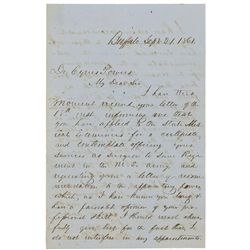 Buffalo Sept. 21, 1861.
Dr Cyrus Powers
My Dear Sir
I have this
moment received your letter of the
17th inst informing me that
you have applied to the State Med
ical Examiners for a certificate,
and contemplate offering your
services as Surgeon to some Regi
ment in the U.S. army, and
requesting from me a letter of recom
mendation to the appointing power
which, as I have known you long &
have a favorable opinion of your pro
fessional skill I should most cheer
fully give, but for the fact that I
do not interfere in any appointments